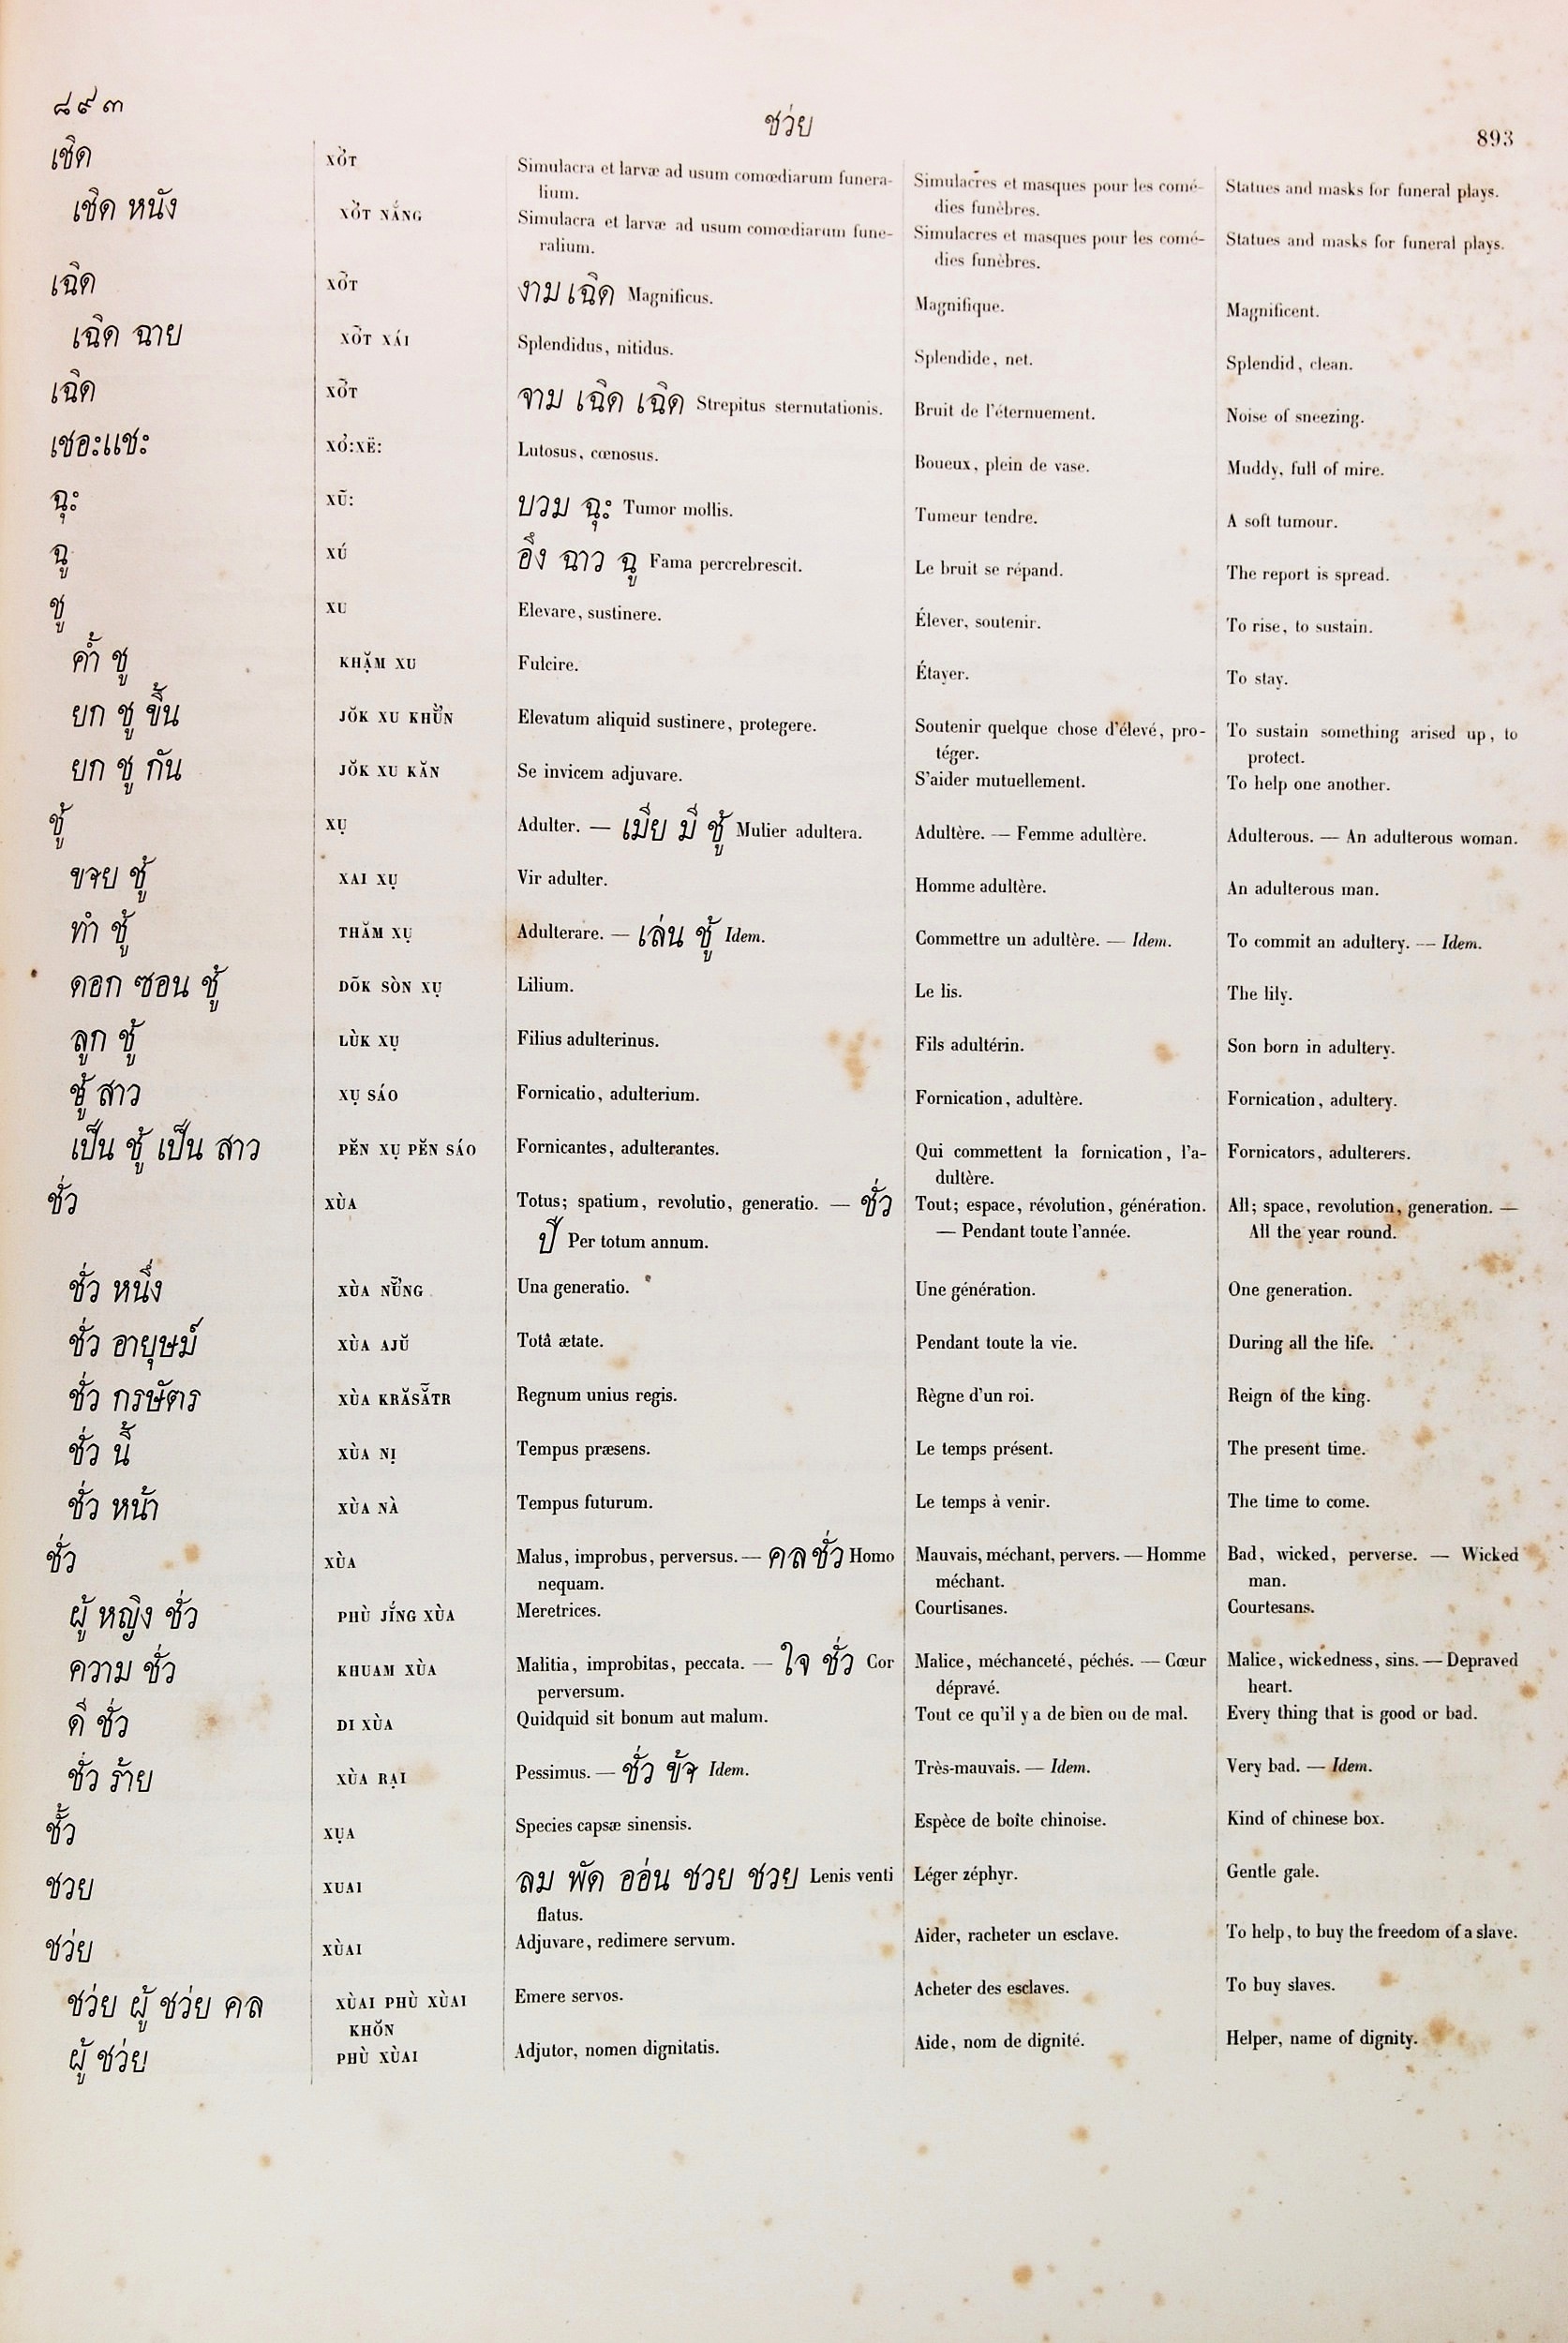 ๘๙๓
ชว่ย
893
เชิด XO᷉T Simulacra et larvæ ad usum comœdiarum funera- Simulacres et masques pour les comé- Statues and masks for funeral plays.
lium. dies funèbres.
เชิด หนัง NẮNG Simulacra et larvæ ad usum comœdiarum fune- Simulacres et masques pour les comé- Statues and masks for funeral plays.
ralium. dies funèbres.
เฉิด งาม เฉิด Magnificus. Magnifique. Magnificent.
เฉิด ฉาย XÁI Splendidus, nitidus. Splendide, net. Splendid, clean.
เฉิด จาม เฉิด เฉิด Strepitus sternutationis. Bruit de l'éternuement. Noise of sneezing.
เชอะแชะ XỎ:XË: Lutosus, cœnosus. Boueux, plein de vase. Muddy, full of mire.
ฉุะ XŨ: บวม ฉุะ Tumor mollis. Tumeur tendre. A soft tumour.
ฉู XÚ อึง ฉาว ฉู Fama percrebrescit. Le bruit se répand. The report is spread.
ชู XU Elevare, sustinere. Élever, soutenir. To rise, to sustain.
ค้ำ ชู KHẶM XU Fulcire. Étayer. To stay.
ยก ชู ขึ้น JŎK XU Elevatum aliquid sustinere, protegere. Soutenir quelque chose d'élevé, pro- To sustain something arised up, to
téger. protect.
ยก ชู กัน JŎK XU KĂN Se invicem adjuvare. S'aider mutuellement. To help one another.
ชู้ XỤ Adulter. — เมีย มี ชู้ Mulier adultera. Adultère. — Femme adultère. Adulterous. — An adulterous woman.
ชาย ชู้ XAI XỤ Vir adulter. Homme adultère. An adulterous man.
ทำ ชู้ THĂM XỤ Adulterare. — เล่น ชู้ Idem. Commettre un adultère. — Idem. To commit an adultery. — Idem.
ดอก ซอน ชู้ DŎK SÒN XỤ Lilium. Le lis. The lily.
ลูก ชู้ LÙK XỤ Filius adulterinus. Fils adultérin. Son born in adultery.
ชู้ สาว XỤ SÁO Fornicatio, adulterium. Fornication, adultère. Fornication, adultery.
เป็น ชู้ เป็น สาว PĔN XỤ PĔN SÁO Fornicantes, adulterantes. Qui commettent la fornication, l'a- Fornicators, adulterers.
dultère.
ชั่ว XÙA Totus; spatium, revolutio, generatio. — ชั่ว Tout; espace, révolution, génération. All; space, revolution, generation. —
ปี Per totum annum. — Pendant toute l'année. All the year round.
ชั่ว หนึ่ง XÙA Una generatio. Une génération. One generation.
ชั่ว อายุษม์ XÙA AJŬ Totâ ætate. Pendant toute la vie. During all the life.
ชั่ว กรษัตร XÙA KRĂSẴTR Regnum unius regis. Règne d'un roi. Reign of the king.
ชั่ว นี้ XÙA NỊ Tempus præsens. Le temps présent. The present time.
ชั่ว หน้า XÙA NÀ Tempus futurum. Le temps à venir. The time to come.
ชั่ว XÙA Malus, improbus, perversus. — คลชั่ว Homo Mauvais, méchant, pervers. — Homme Bad, wicked, perverse. — Wicked
nequam. méchant. man.
ผู้ หญิง ชั่ว PHÙ JĬNG XÙA Meretrices. Courtisanes. Courtesans.
ความ ชั่ว KHUAM XÙA Malitia, improbitas, peccata. — ใจ ชั่ว Cor Malice, méchanceté, péchés. — Cœur Malice, wickedness, sins. — Depraved
perversum. dépravé. heart.
ดี ชั่ว DI XÙA Quidquid sit bonum aut malum. Tout ce qu'il y a de bien ou de mal. Every thing that is good or bad.
ชั่ว ร้าย XÙA RẠI Pessimus. — ชั่ว ช้า Idem. Très-mauvais. — Idem. Very bad. — Idem.
ชั้ว XỤA Species capsæ sinensis. Espèce de boîte chinoise. Kind of chinese box.
ชวย XUAI ลม พัด ออ่น ชวย ชวย Lenis venti Léger zéphyr. Gentle gale.
flatus.
ชว่ย XÙAI Adjuvare, redimere servum. Aider, racheter un esclave. To help, to buy the freedom of a slave.
ชว่ย ผู้ ชว่ย คล XÙAI PHÙ XÙAI Emere servos. Acheter des esclaves. To buy slaves.
KHŎN
ผู้ ชว่ย PHÙ XÙAI Adjutor, nomen dignitatis. Aide, nom de dignité. Helper, name of dignity.